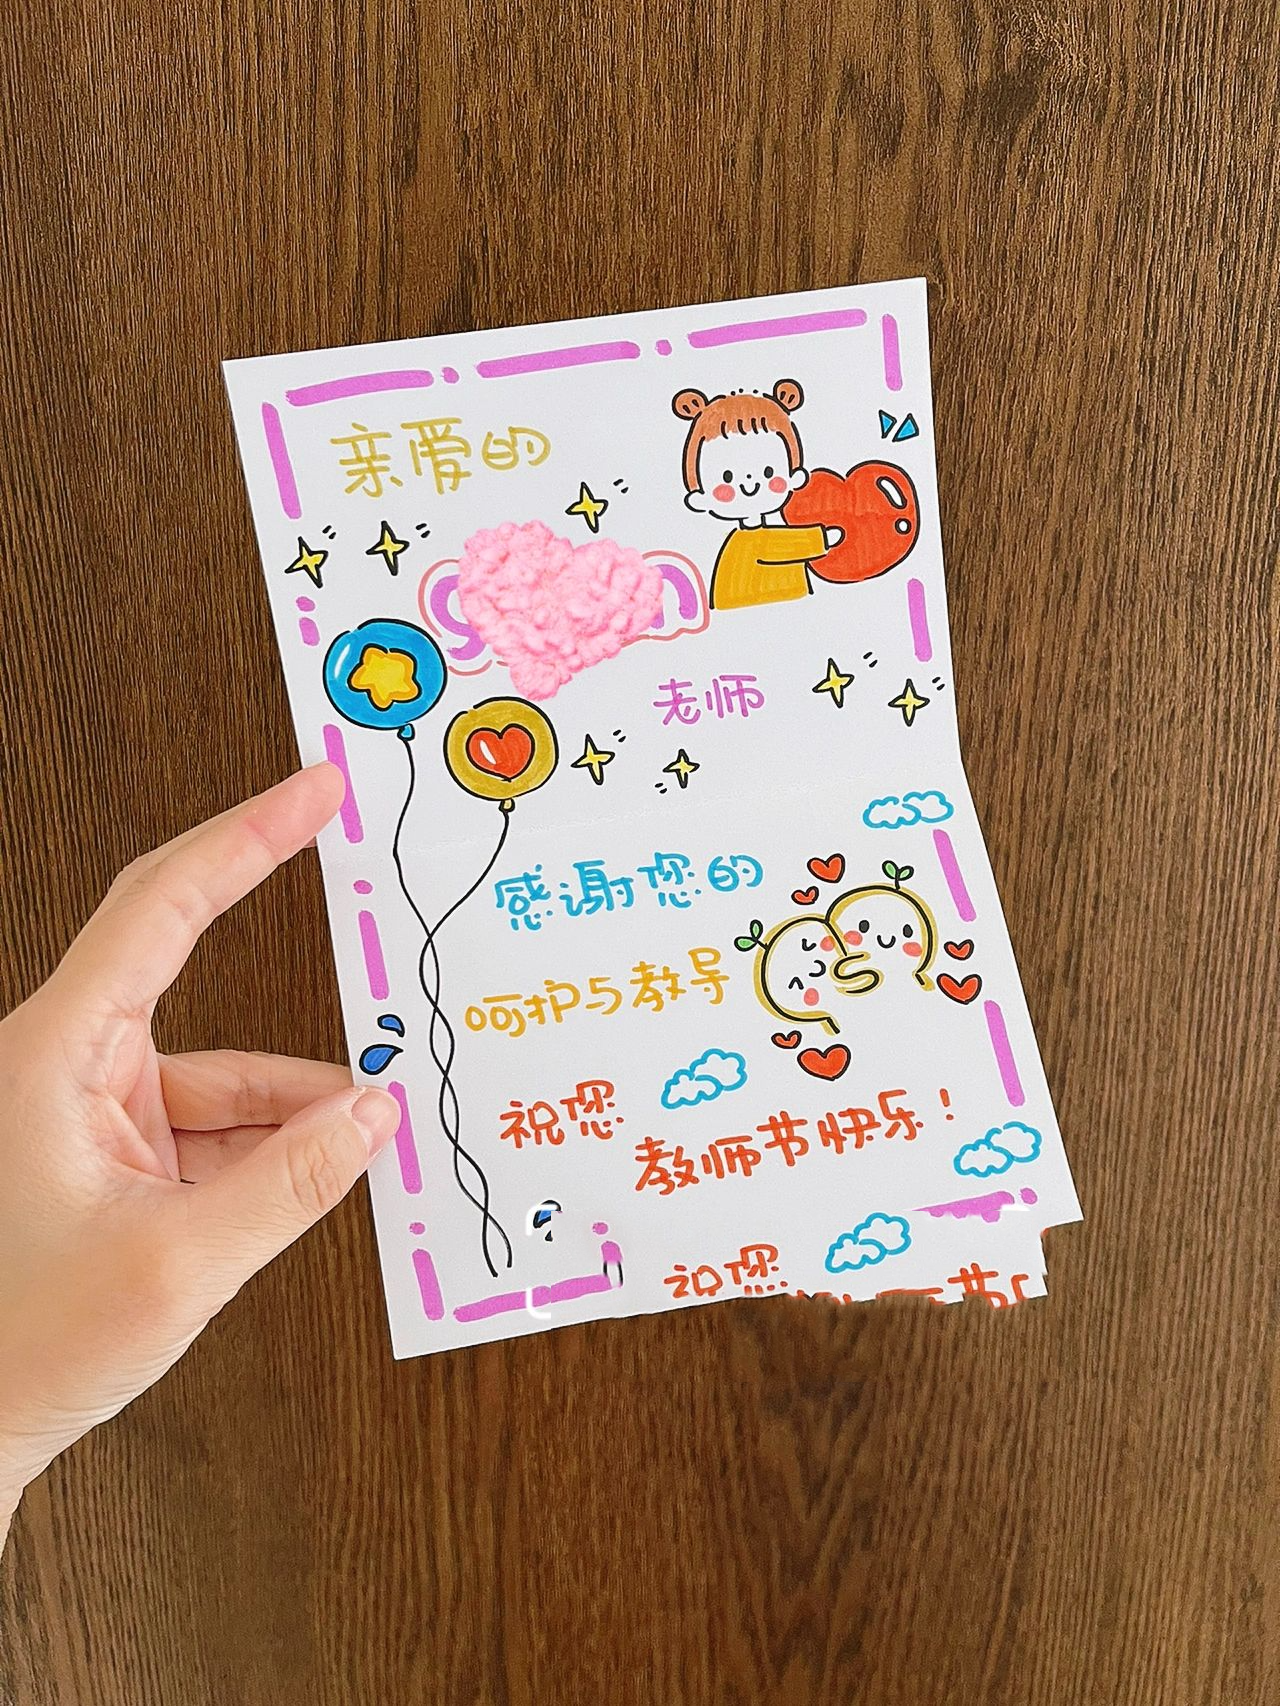 亲爱的
老师
感谢您的
呵护与教导
祝您
教师节快乐！
祝您
节